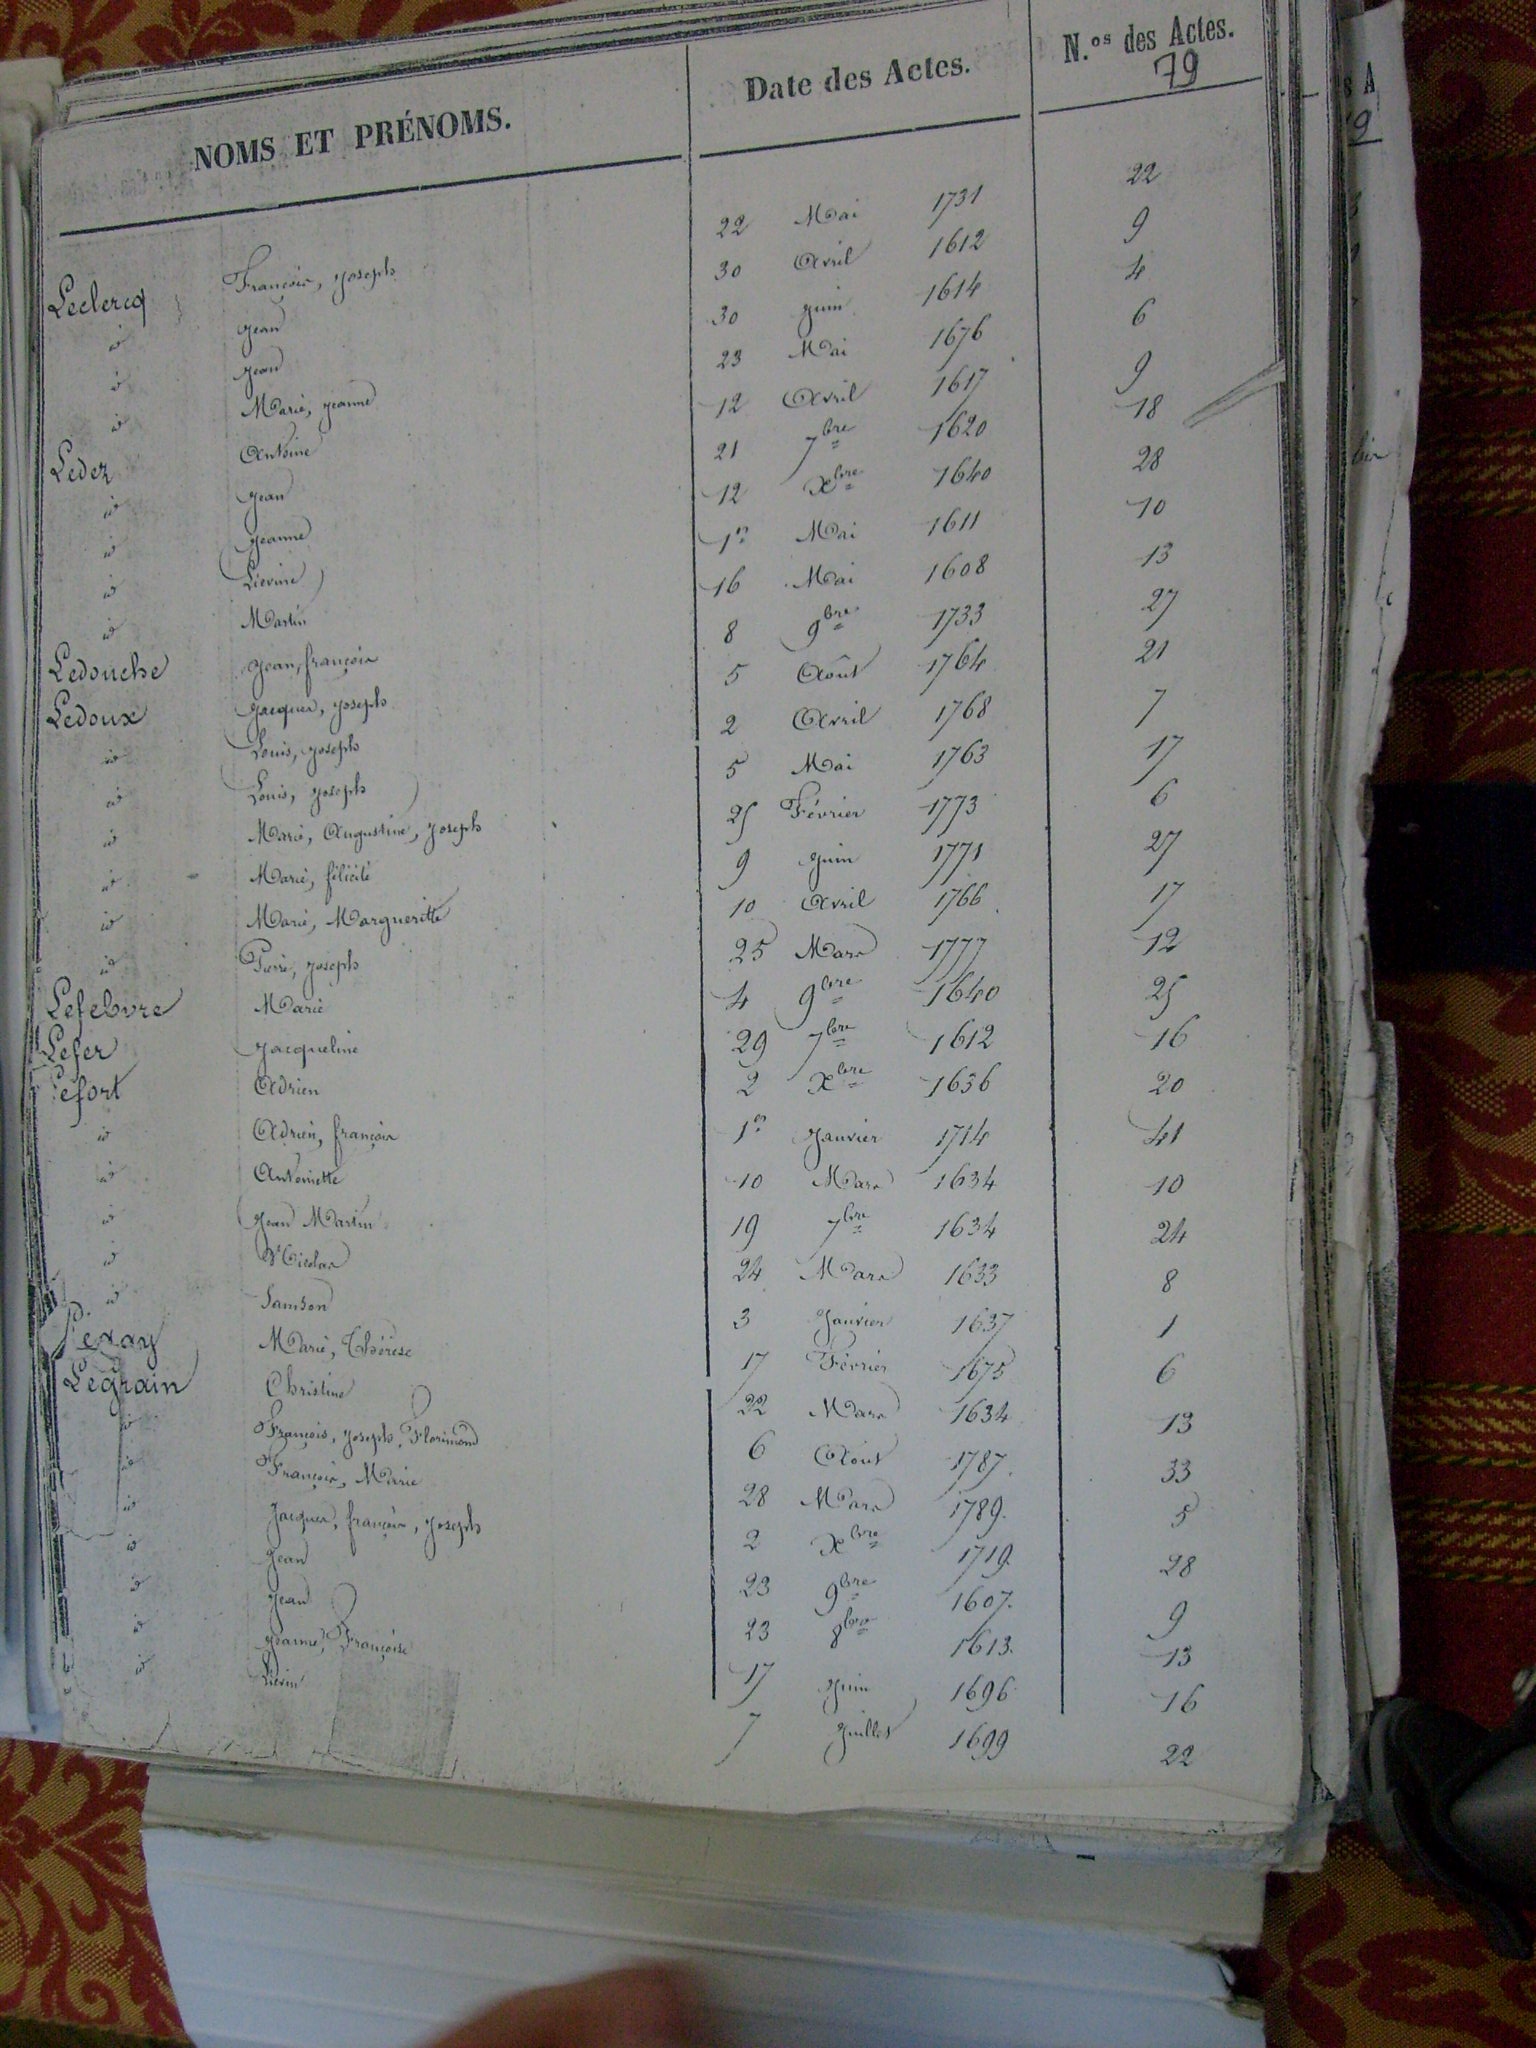 NOMS ET PRÉNOMS. Date des Actes. N.os des Actes.
79
Leclercq François, joseph 22 Mai 1731 22
id Jean 30 Avril 1612 9
id Jean 30 juin 1614 4
id Marie, jeanne 23 Mai 1676 6
Ledez Antoine 12 Avril 1617 9
id Jean 21 7bre 1620 18
id Jeanne 12 Xbre 1640 28
id Liévine 1er Mai 1611 10
id Martin 16 Mai 1608 13
Ledouche Jean, françois 8 9bre 1733 27
Ledoux Jacques, joseph 5 Août 1764 21
id Louis, joseph 2 Avril 1768 7
id Louis, joseph 5 Mai 1763 17
id Marie, Augustine, joseph 25 Février 1773 6
id Marie, félicité 9 juin 1771 27
id Marie, Margueritte 10 Avril 1766 17
id Pierre, joseph 25 Mars 1777 12
Lefebvre Marie 4 9bre 1640 25
Lefer Jacqueline 29 7bre 1612 16
Lefort Adrien 2 Xbre 1636 20
id Adrien, françois 1er Janvier 1714 41
id Antoinette 10 Mars 1634 10
id Jean Martin 19 7bre 1634 24
id Nicolas 24 Mars 1633 8
id Samson 3 Janvier 1637 1
Marie, Thérèse 17 Février 1675 6
Legrain Christine 22 Mars 1634 13
id François, joseph, Florimond 6 Août 1787. 33
id François, Marie 28 Mars 1789. 5
id Jacques, françois, joseph 2 Xbre 1719. 28
id Jean 23 9bre 1607. 9
id Jean 23 8bre 1613. 13
id Jeanne, Françoise 17 juin 1696 16
id Liévin 7 juillet 1699 22